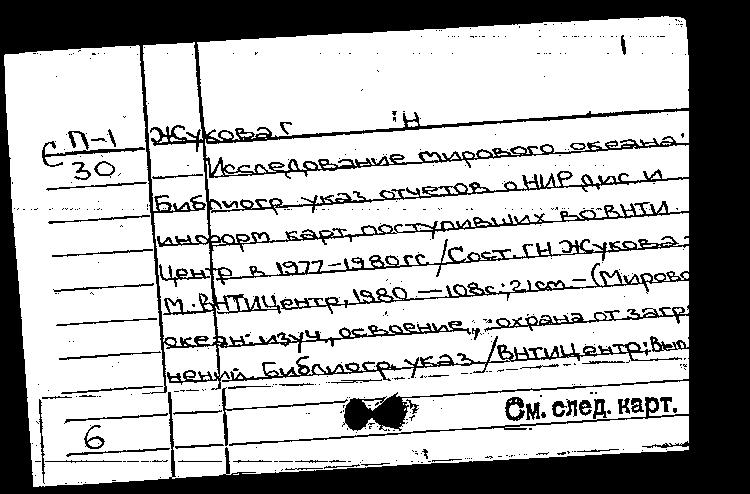 С П-1 Жукова Г Н
30 Исследование мирового океана:
Библиогр. указ. отчетов о НИР, дис. и
информ. карт, поступивших во ВНТИ
Центр в 1977-1980гг. / Сост. ГН Жукова.-
М.: ВНТИЦентр, 1980. - 108с.; 21см - (Мирово
океан: изуч., освоение, охрана от загр
нений. Библиогр. указ. / ВНТИЦентр; Вып.
См. след. карт.
6